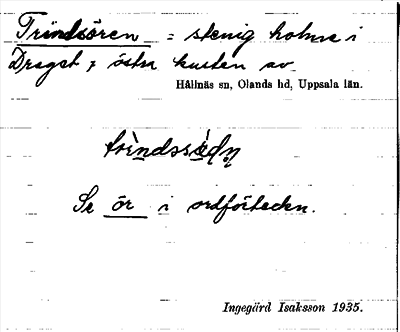 Trindsören = stenig holme i
Dragst, östra kusten av
Hållnäs sn, Olands hd, Uppsala län.
Se ör i ordförteckn.
Ingegärd Isaksson 1935.